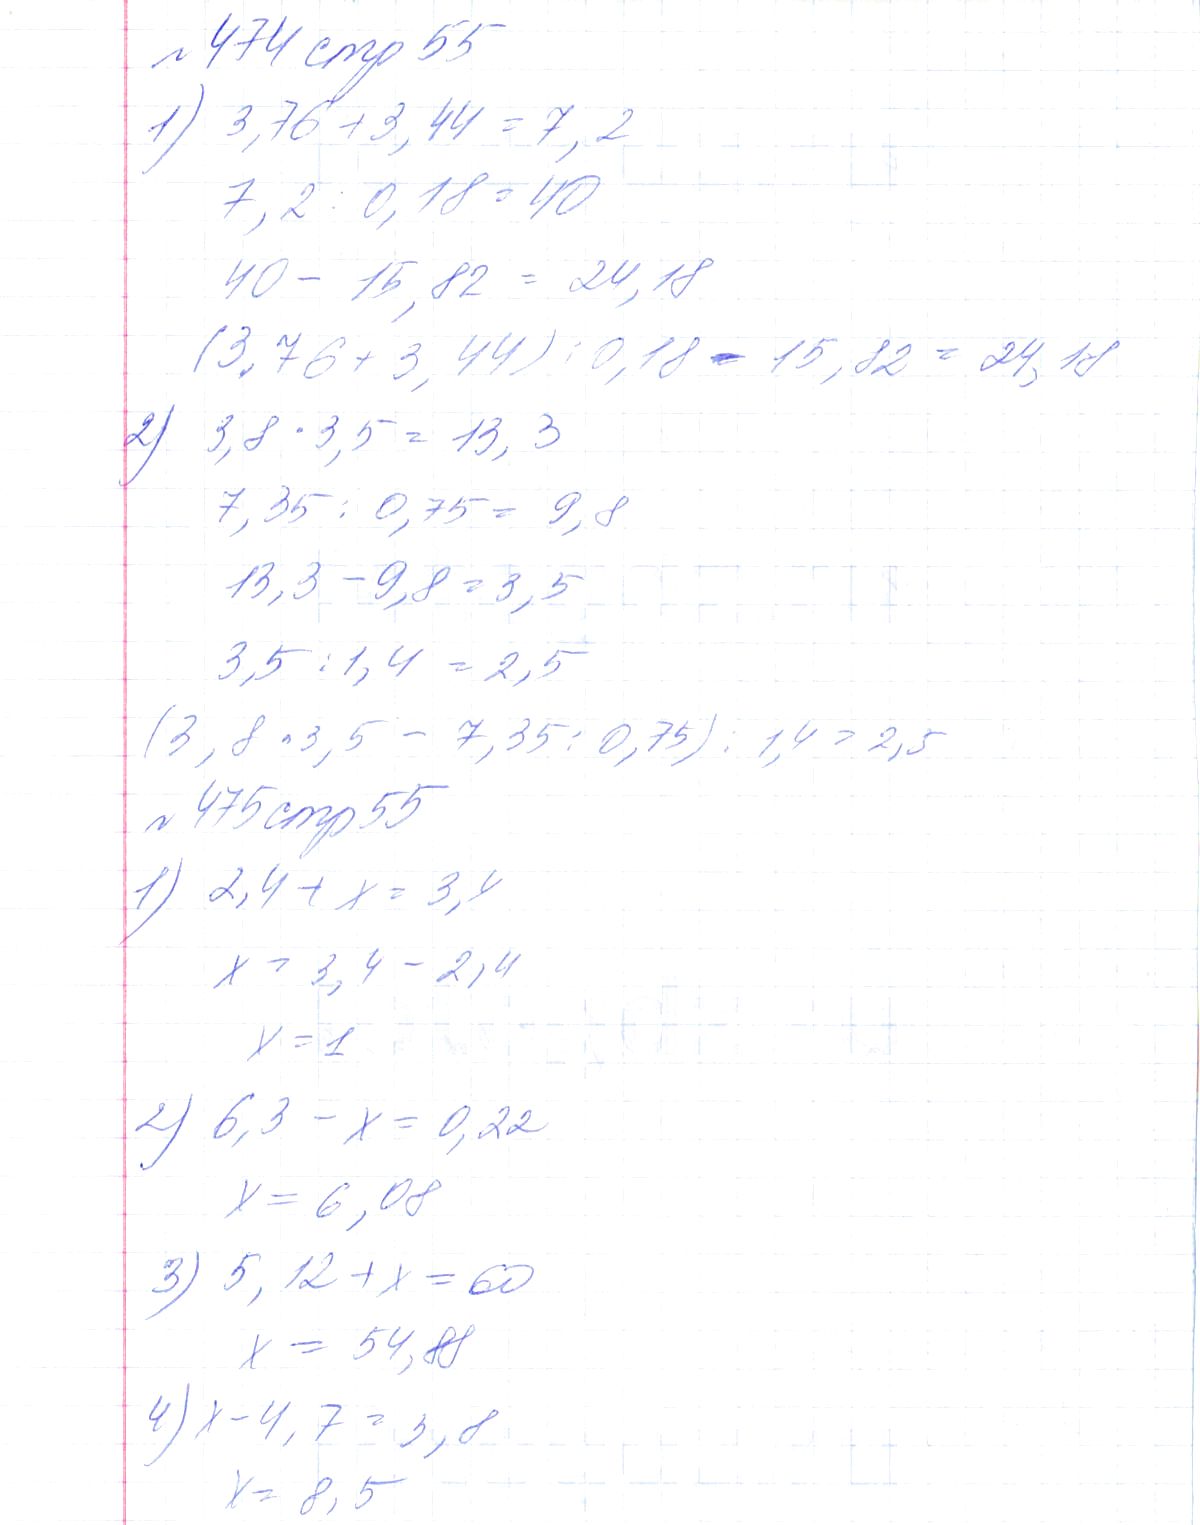 № 474 стр 55
1) 3,76 + 3,44 = 7,2
7,2 : 0,18 = 40
40 - 15,82 = 24,18
(3,76 + 3,44) : 0,18 - 15,82 = 24,18
2) 3,8 · 3,5 = 13,3
7,35 : 0,75 = 9,8
13,3 - 9,8 = 3,5
3,5 : 1,4 = 2,5
(3,8 · 3,5 - 7,35 : 0,75) : 1,4 = 2,5
№ 475 стр 55
1) 2,4 + x = 3,4
x = 3,4 - 2,4
x = 1
2) 6,3 - x = 0,22
x = 6,08
3) 5,12 + x = 60
x = 54,88
4) x - 4,7 = 3,8
x = 8,5